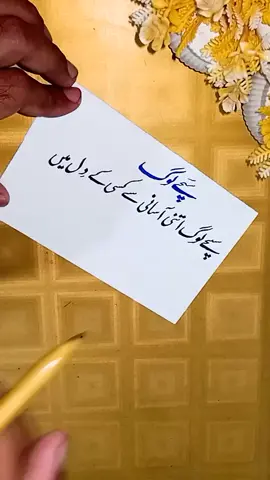 سچے لوگ
سچے لوگ اتنی آسانی سے کسی کے دل میں